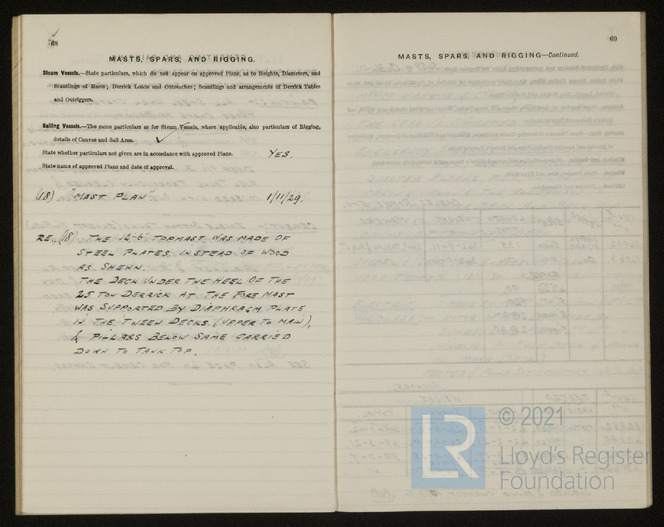 68
MASTS, SPARS, AND RIGGING.
Steam Vessels.—State particulars, which do not appear on approved Plans, as to Heights, Diameters, and
Scantlings of Masts; Derrick Loads and Outreaches; Scantlings and arrangements of Derrick Tables
and Outriggers.
Sailing Vessels.—The same particulars as for Steam Vessels, where applicable, also particulars of Rigging,
details of Canvas and Sail Area.
State whether particulars not given are in accordance with approved Plans. YES.
State name of approved Plans and date of approval.
(18) "MAST PLAN" 1/11/29.
RE. (18) THE 12-6 TOPMAST WAS MADE OF
STEEL PLATES INSTEAD OF WOOD
AS SHEWN.
THE DECK UNDER THE HEEL OF THE
25 TON DERRICK AT THE FORE MAST
WAS SUPPORTED BY DIAPHRAGM PLATE
IN THE TWEEN DECKS (UPPER TO MAIN),
& PILLARS BELOW SAME CARRIED
DOWN TO TANK TOP.
69
MASTS, SPARS, AND RIGGING—Continued.
LR
© 2021
Lloyd's Register
Foundation